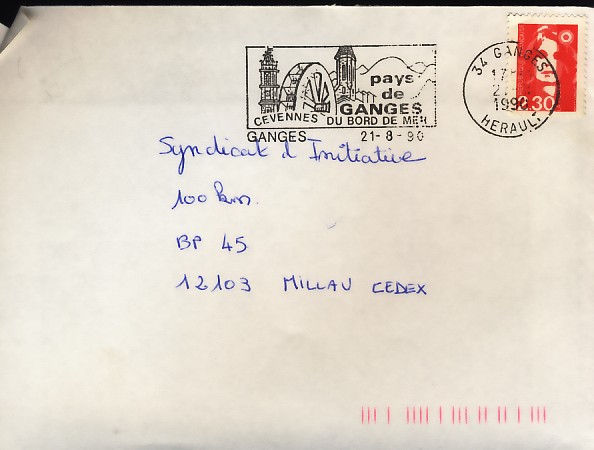 34 GANGES
17
21
1990
HERAULT
2.30
pays
de
GANGES
CEVENNES DU BORD DE MER
GANGES 21-8-90
Syndicat d'Initiative
100 km.
BP 45
12103 MILLAU CEDEX